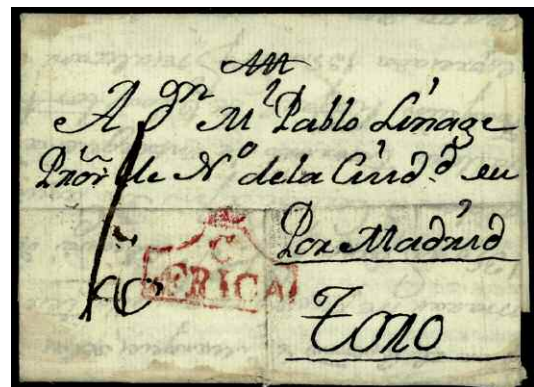 A Dn Ml Pablo Linage
Pror de No de la Ciud.d en
Por Madrid
C
AFRICA
Toro